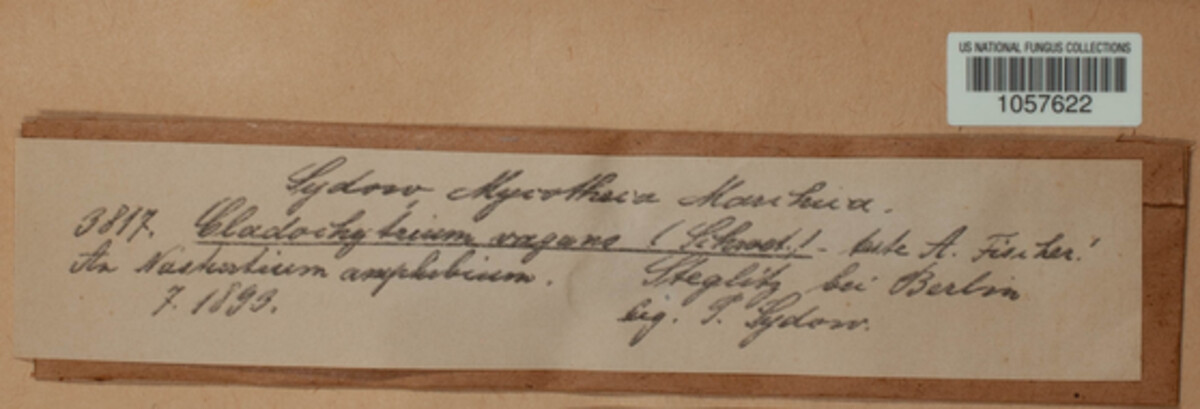 US NATIONAL FUNGUS COLLECTIONS
1057622
Sydow, Mycotheca Marchica.
3817. Cladochytrium vagans (Schroet.) - teste A. Fischer!
An Nasturtium amphibium. Steglitz bei Berlin
7. 1893. leg. P. Sydow.